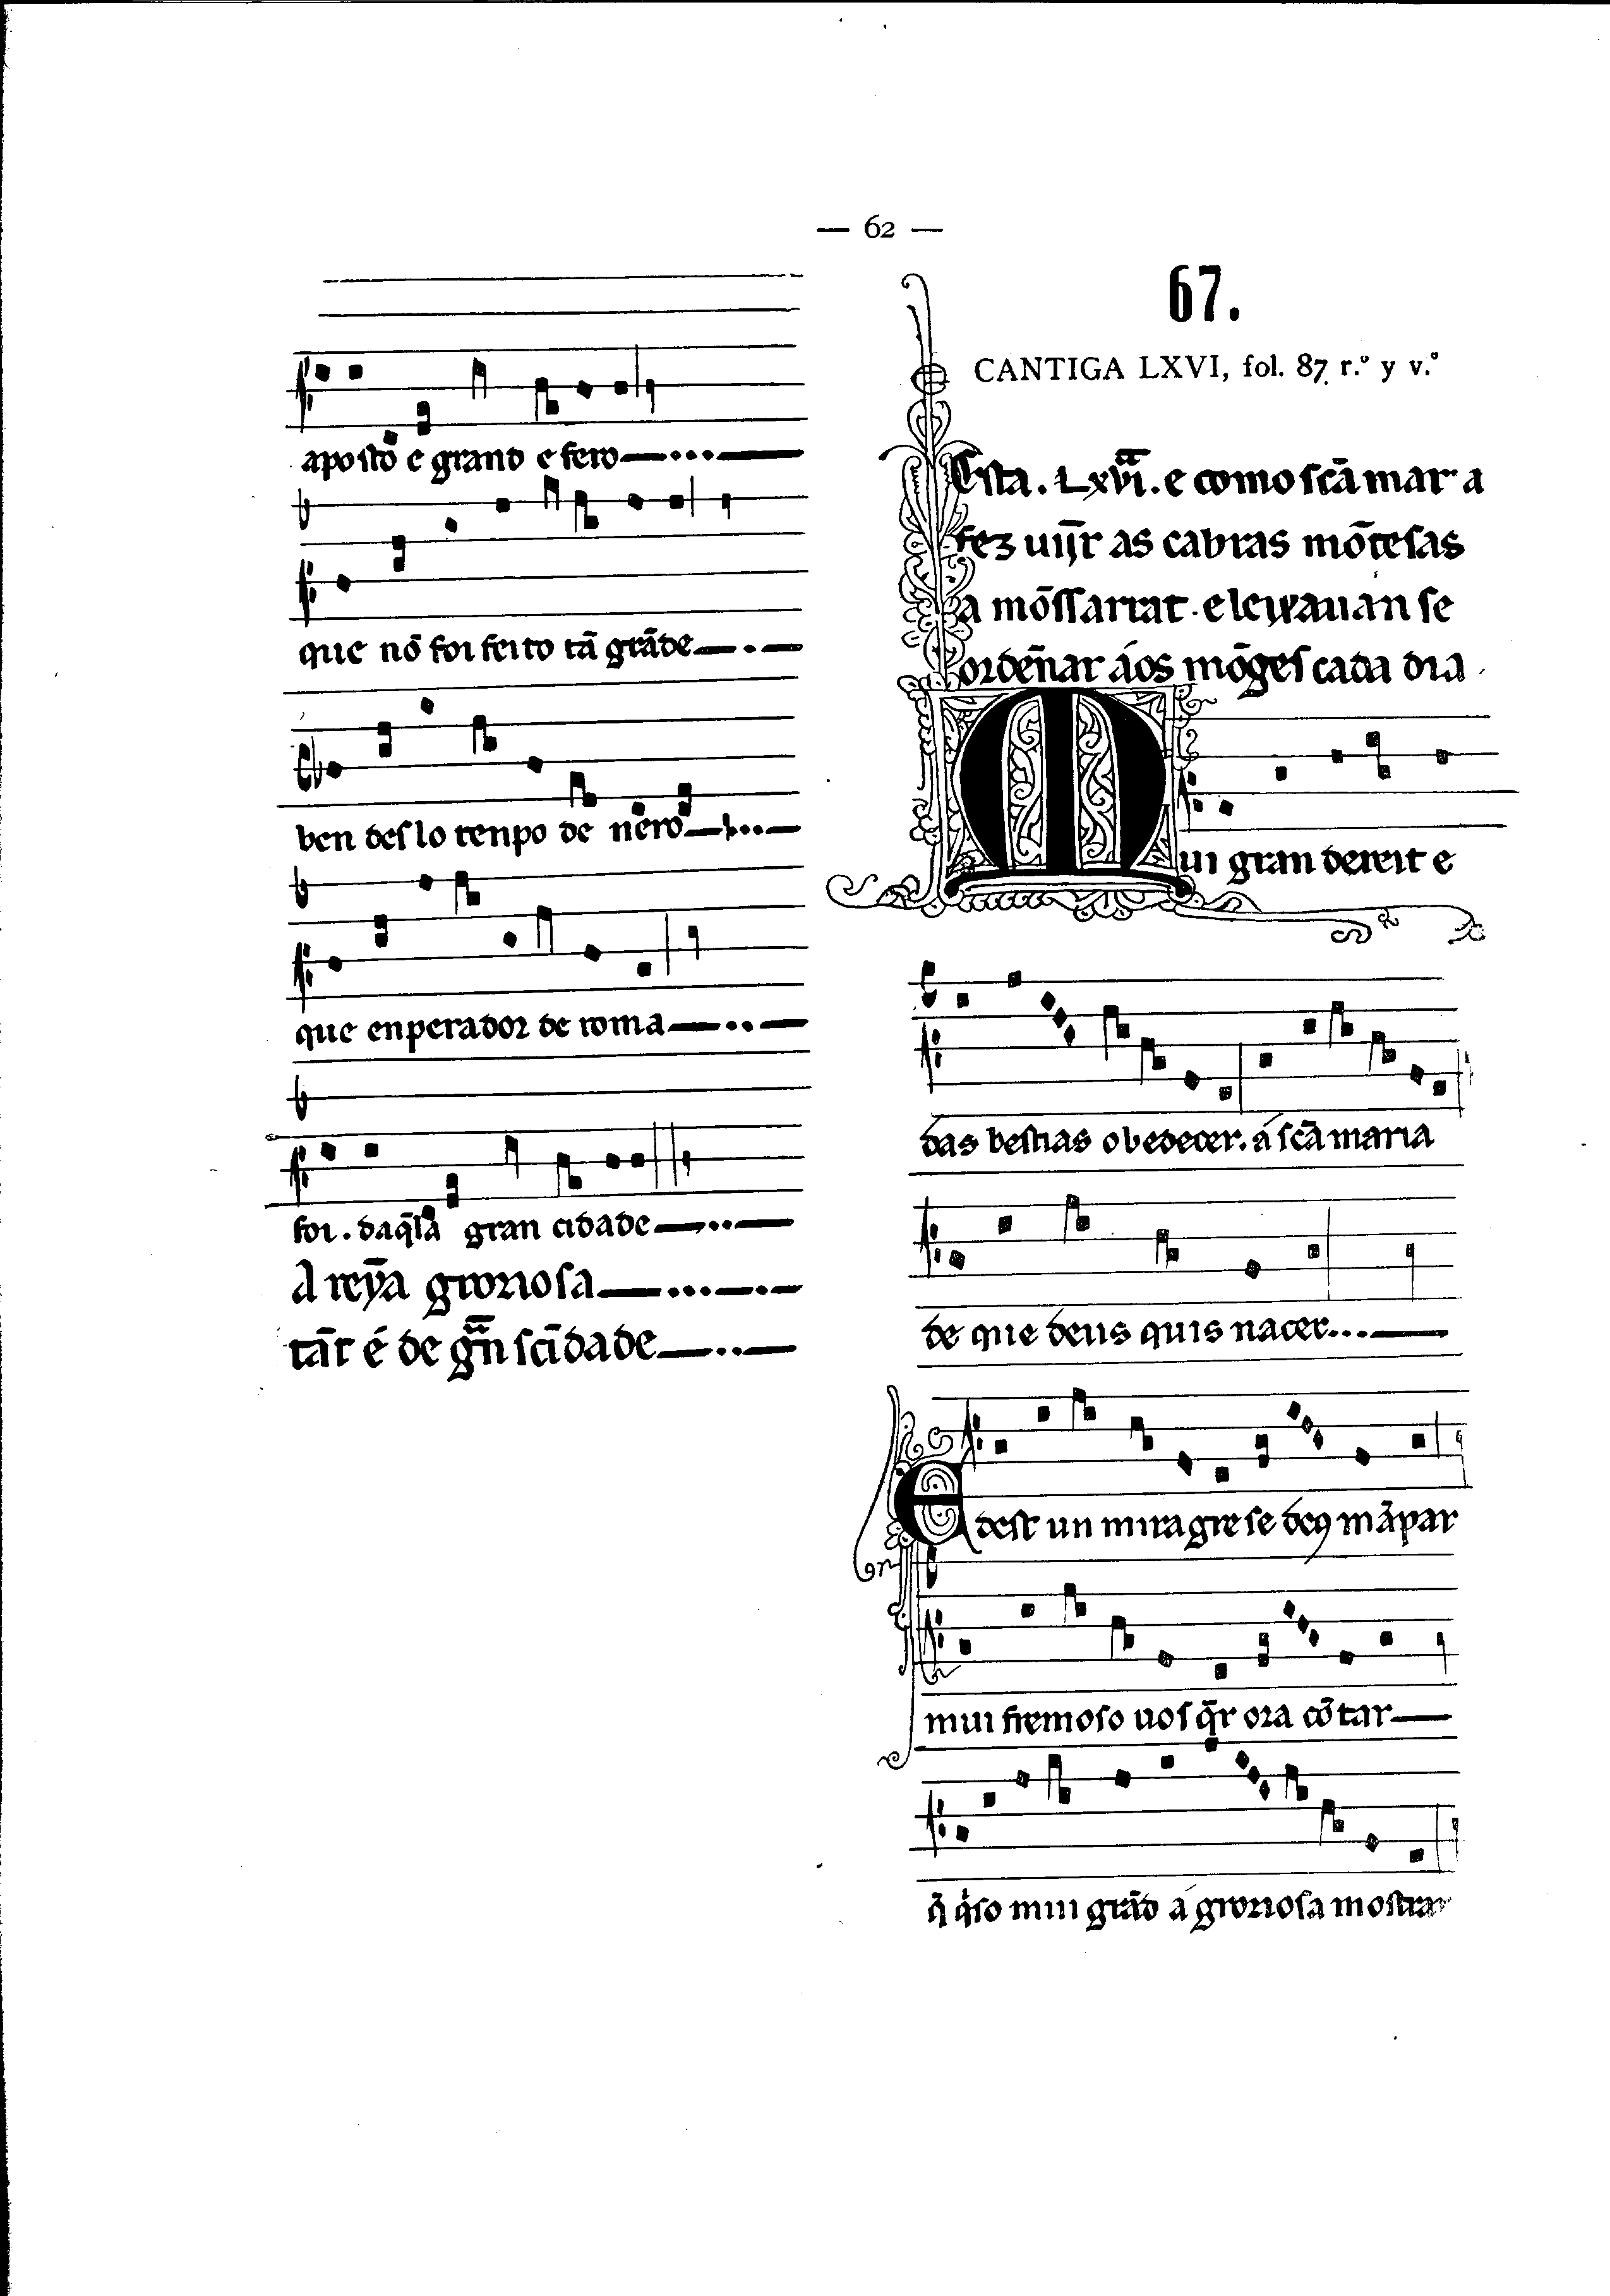 — 62 —
aposto e grand e fero
que nõ foi feito tã grãde
ben deſlo tenpo de nero
que enperador de roma
foi. daq̃la gran cidade
A reỹa groriosa
tãt é de gr̃ã ſc̃idade
67.
CANTIGA LXVI, fol. 87 r.º y v.º
Esta. Lxvi.ª e como ſcã mar a
fez uĩjr as cabras mõteſas
a mõſſarrat. e leyxauan ſe
ordẽnar áos mõges cada dia
Mui gran dereit e
das bestias obedecer. á ſcã maria
de que deus quis nacer
E dest un miragre se deꝯ mãpar
mui fremoſo uoſ q̃r ora cõtar
q̃ q̇ſo mui grãd á grorioſa mostrar